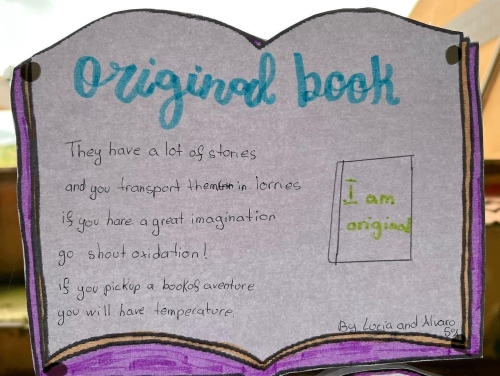 original book
They have a lot of stories
and you transport them in lorries
if you have a great imagination
go shout oxidation!
if you pickup a book of aventure
you will have temperature.
I am
original
By Lucía and Álvaro
5º